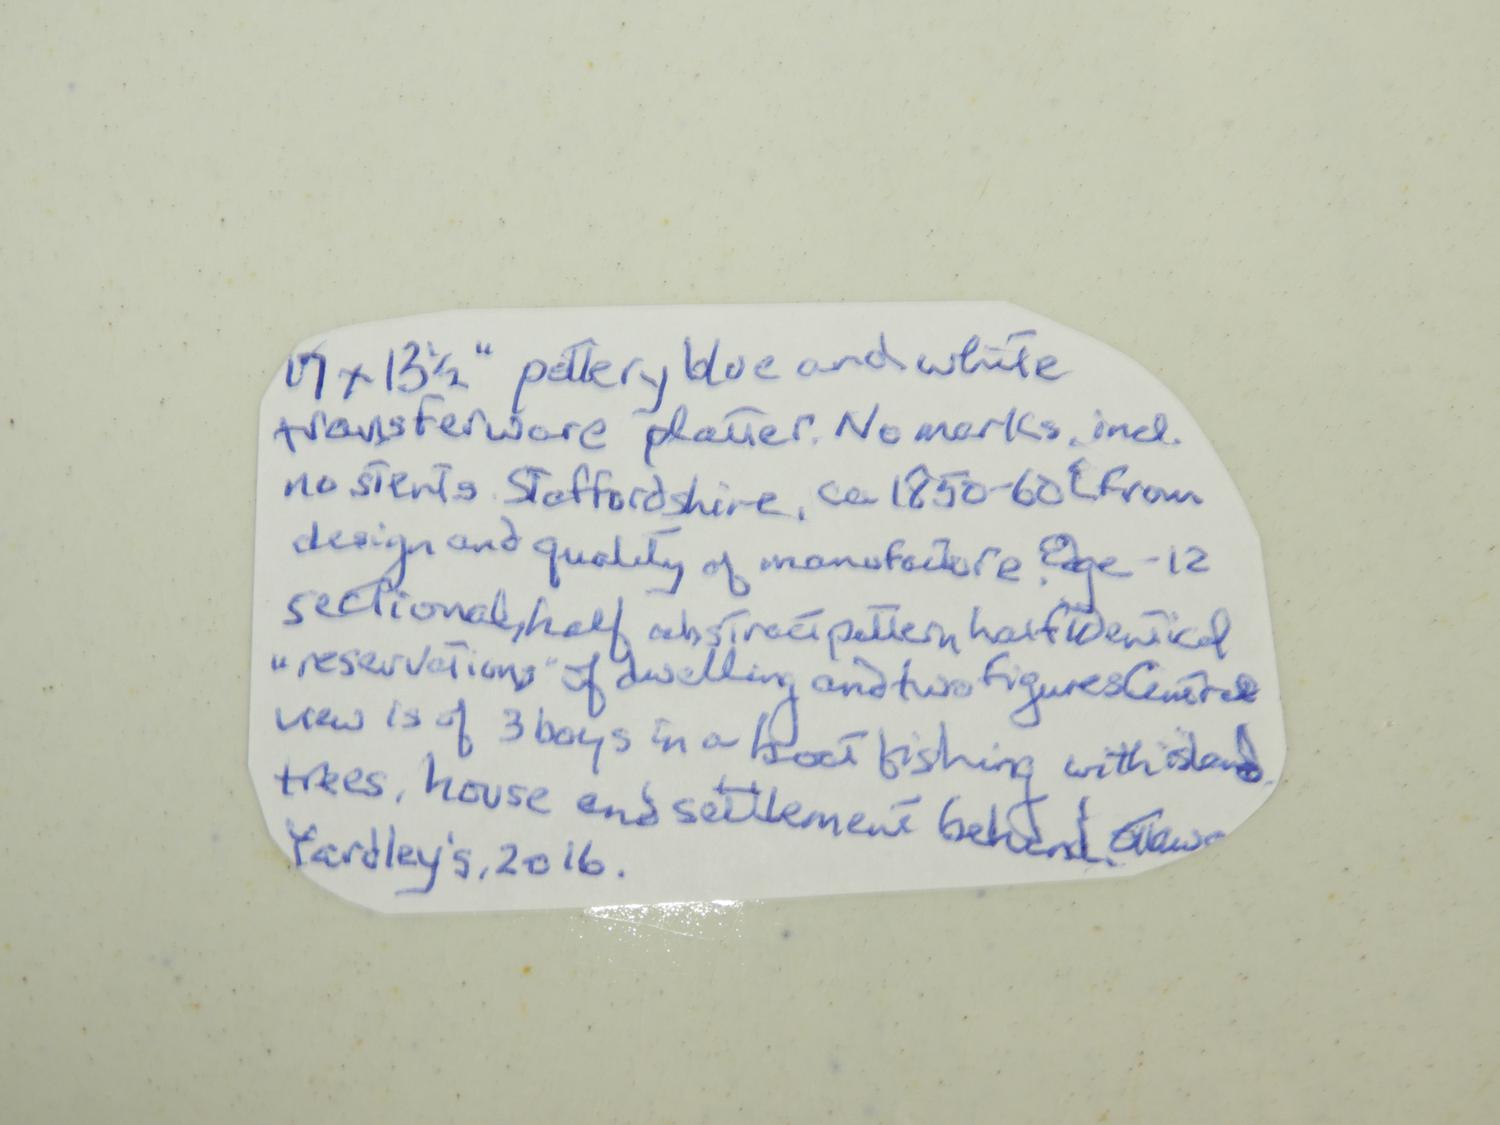 17 x 13½" pottery blue and white
transferware platter. No marks, incl.
no stents. Staffordshire, ca 1850-60 (from
design and quality of manufacture. Edge - 12
sectional, half abstract pattern half identical
"reservations" of dwelling and two figures Central
view is of 3 boys in a boat fishing with island,
trees, house and settlement behind.
Yardley's, 2016.